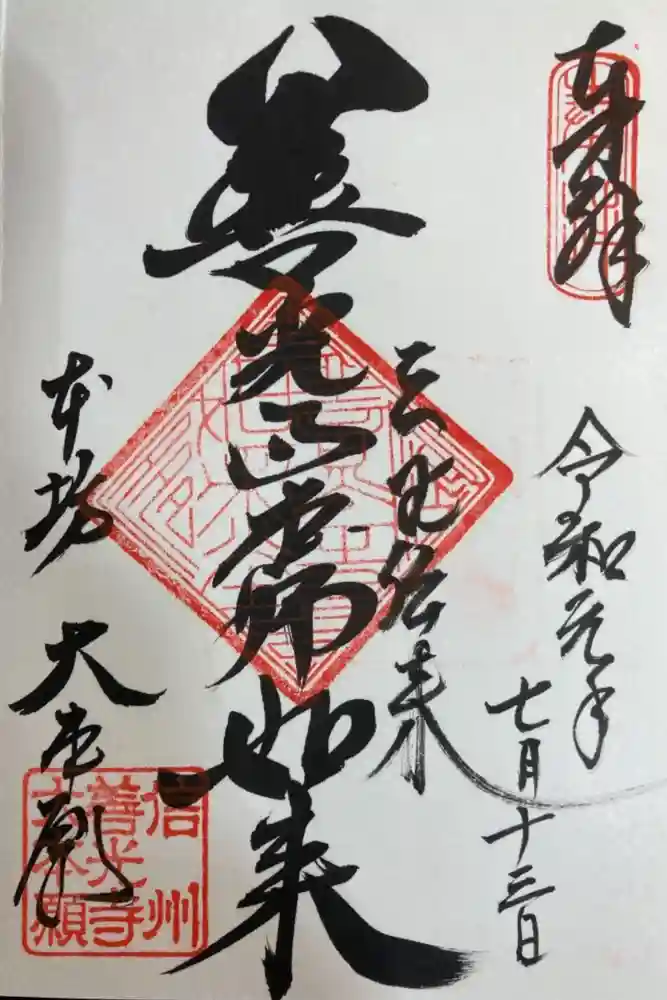 奉拝
令和元年
七月十三日
三国伝来
善光 如来
本坊 大本願
信州
善光寺
大本願